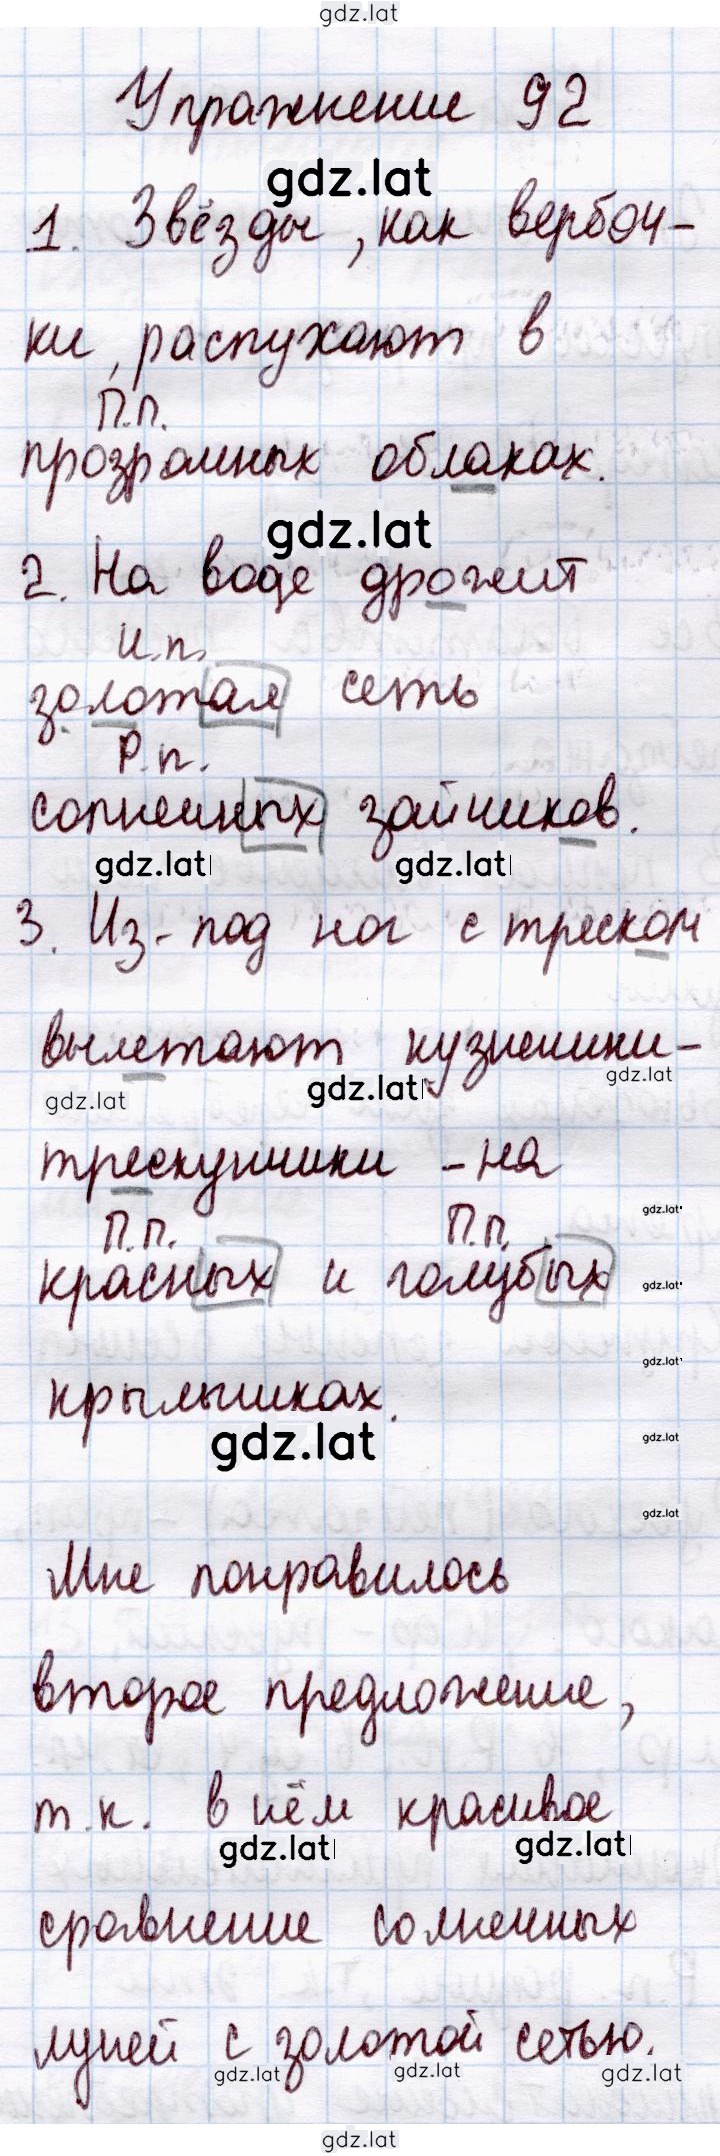 gdz.lat
Упражнение 92
gdz.lat
1. Звёзды, как вербоч-
ки, распухают в
П.п.
прозрачных облаках.
gdz.lat
2. На воде дрожит
И.п.
золотая сеть
Р.п.
солнечных зайчиков.
gdz.lat gdz.lat
3. Из-под ног с треском
вылетают кузнечики-
gdz.lat gdz.lat gdz.lat
трескунчики - на
gdz.lat
П.п. П.п.
красных и голубых
gdz.lat
gdz.lat
крылышках.
gdz.lat gdz.lat
gdz.lat
Мне понравилось
второе предложение,
т.к. в нём красивое
gdz.lat gdz.lat
сравнение солнечных
лучей с золотой сетью.
gdz.lat gdz.lat gdz.lat
gdz.lat